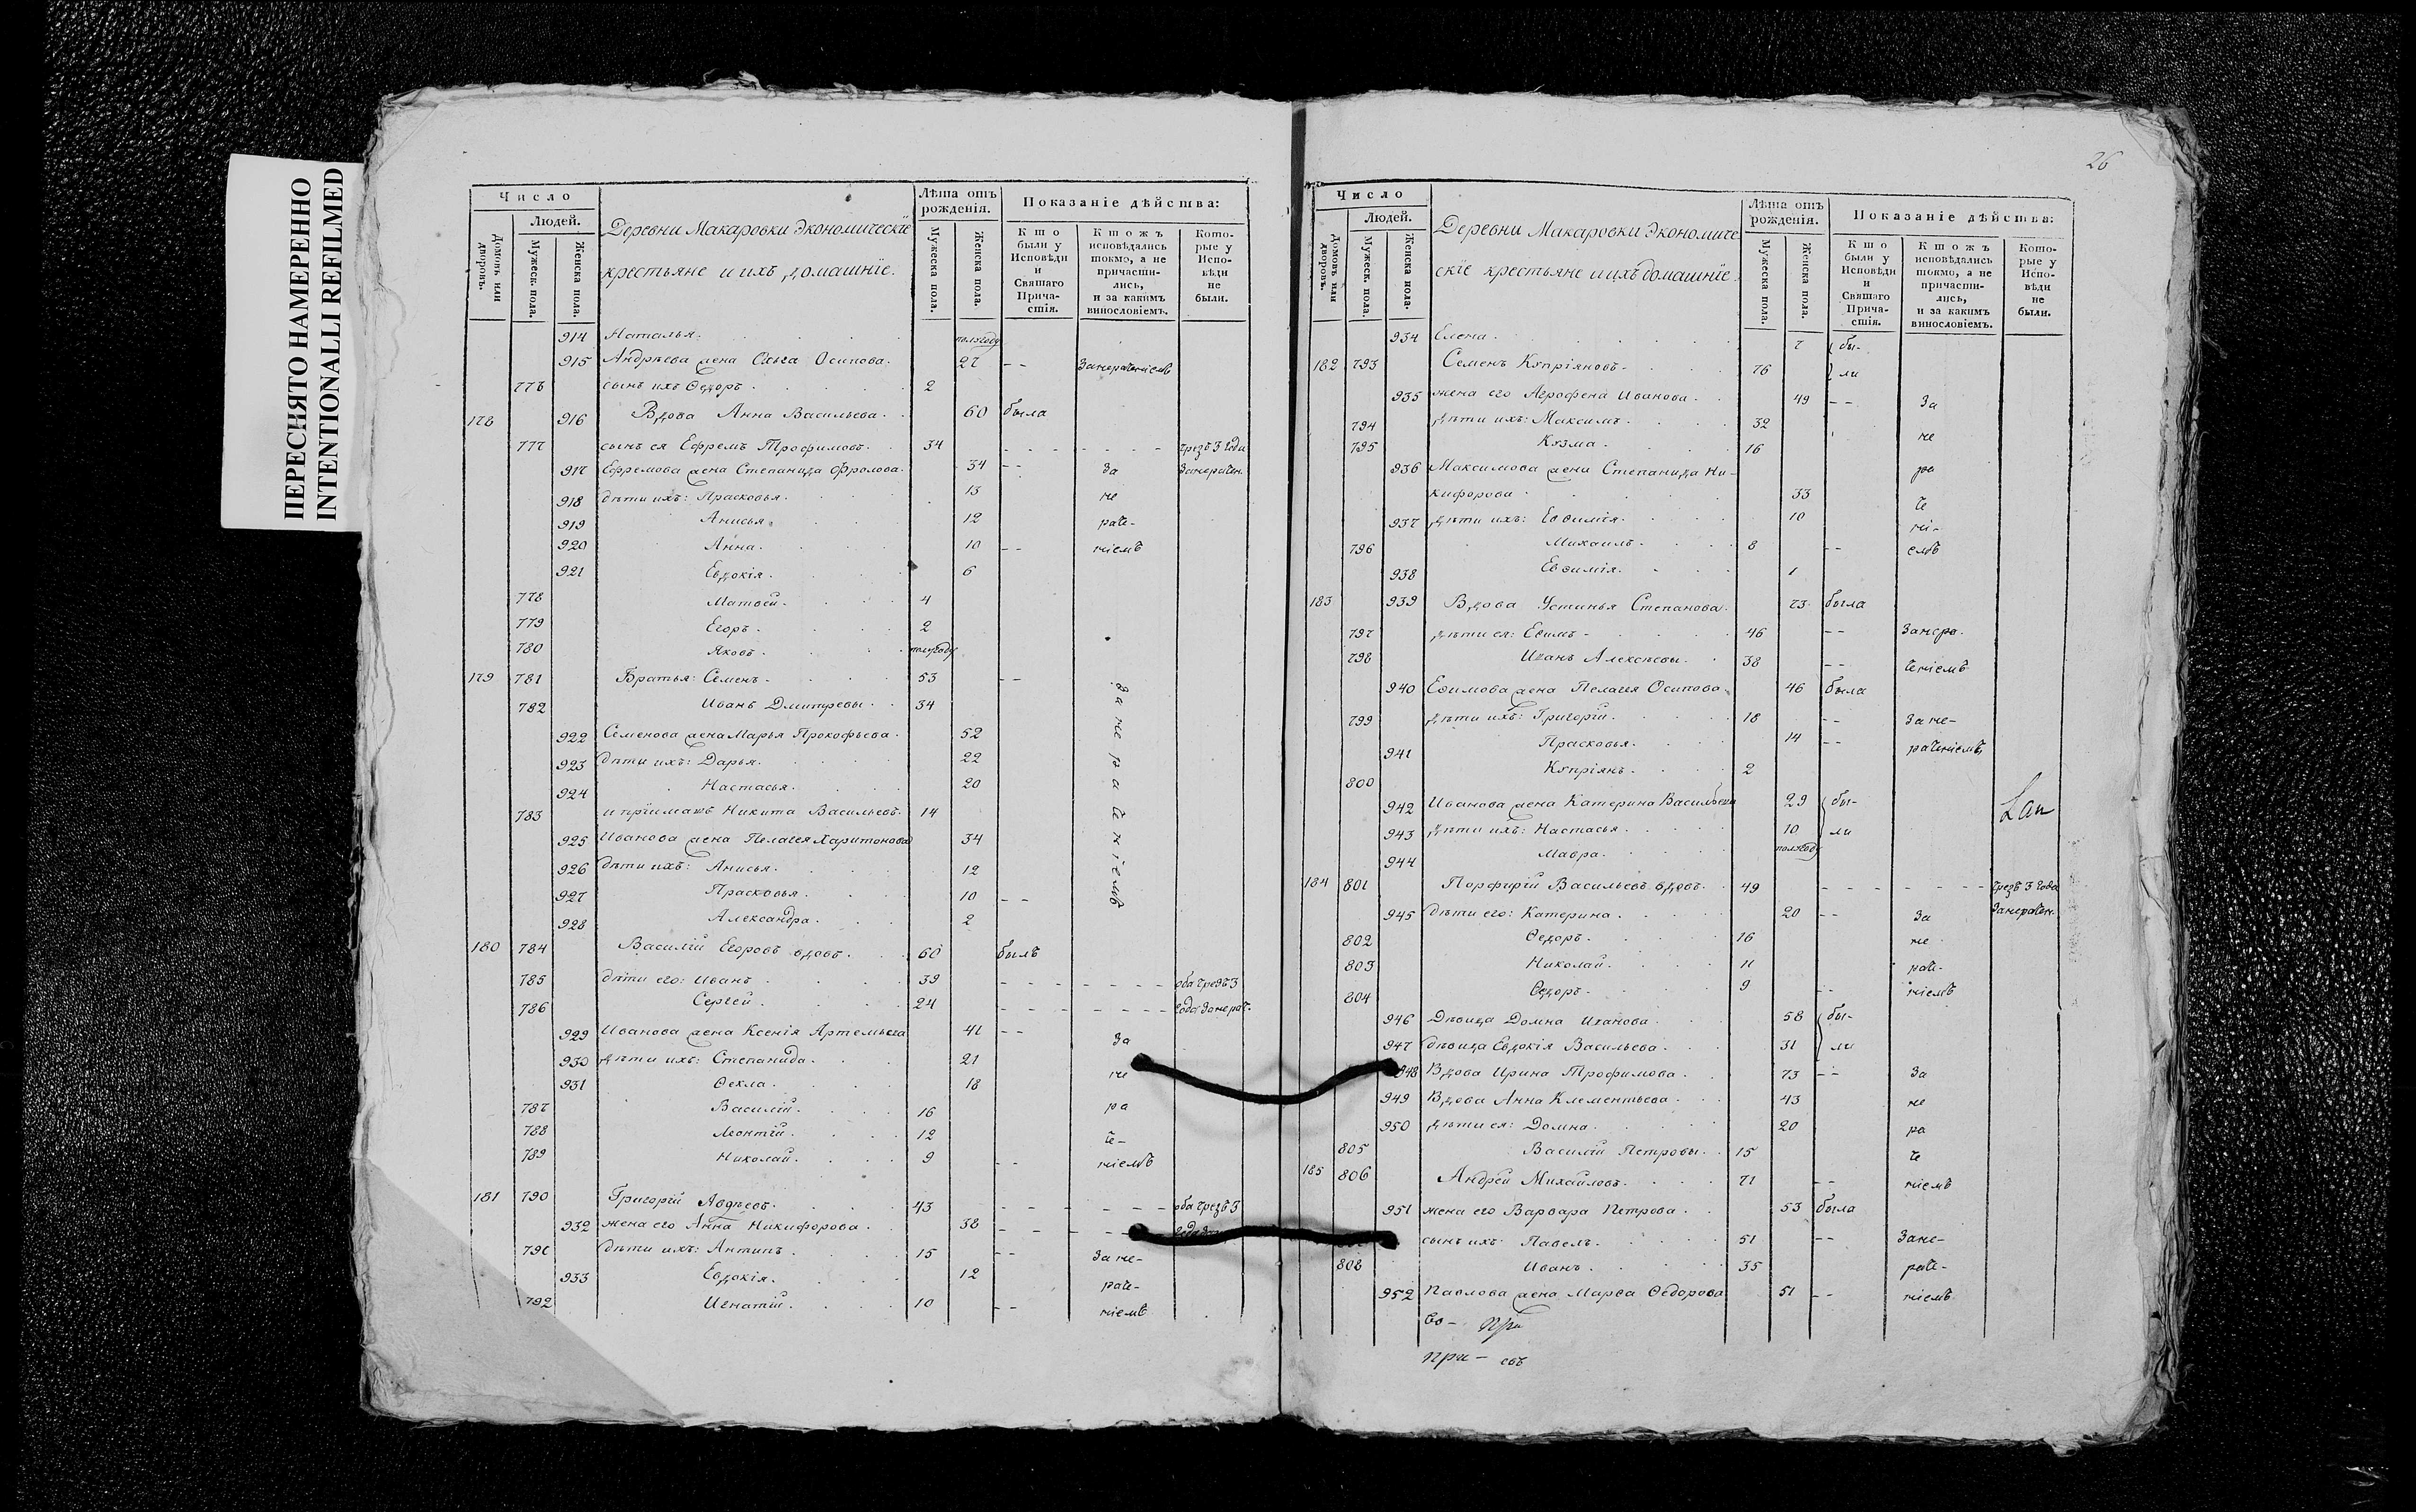 ПЕРЕСНЯТО НАМЕРЕННО
INTENTIONALLI REFILMED
Число
Людей.
Домовъ или дворовъ.
Мужеск. пола.
Женска пола.
Деревни Макаровки Экономическіе
крестьяне и ихъ домашніе.
Лѣта отъ рожденія.
Мужеска пола.
Женска пола.
Показаніе дѣйства:
Кто были у Исповѣди и Святаго Причастія.
Ктожъ исповѣдались токмо, а не причастились, и за какимъ винословіемъ.
Которые у Исповѣди не были.
914 Наталья. полугоду
915 Андрѣева жена Ольга Осипова. 27 - - Занераченіемъ
776 сынъ ихъ Ѳедоръ. 2
178 916 Вдова Анна Васильева. 60 была
777 сынъ ея Ефремъ Трофимовъ. 34 - - - - - - чрезъ 3 года
917 Ефремова жена Степанида Фролова. 34 - - За Занерачен.
918 дѣти ихъ: Прасковья. 13 не
919 Анисья. 12 раче-
920 Анна. 10 - - ніемъ
921 Евдокія. 6
778 Матвей. 4
779 Егоръ. 2
780 Яковъ. полугоду
179 781 Братья: Семенъ. 53 - - За нераченіемъ
782 Иванъ Дмитревы. 34
922 Семенова жена Марья Прокофьева. 52
923 дѣти ихъ: Дарья. 22
924 Настасья. 20
783 и пріимашъ Никита Васильевъ. 14
925 Иванова жена Пелагея Харитонова 34
926 дѣти ихъ: Анисья. 12
927 Прасковья. 10 - -
928 Александра. 2
180 784 Василій Егоровъ вдовъ. 60 былъ
785 дѣти его: Иванъ. 39 - - - - - - - оба чрезъ 3
786 Сергей. 24 - - - - - - - года Занерач-
929 Иванова жена Ксенія Артемьева 41 - - За
930 дѣти ихъ: Степанида. 21 не
931 Ѳекла. 18
787 Василій. 16 ра
788 Леонтій. 12 че-
789 Николай. 9 - - ніемъ
181 790 Григорій Авдѣевъ. 43 - - - - - - оба чрезъ 3
932 жена его Анна Никифорова. 38 - - - -
791 дѣти ихъ: Антипъ. 15 - - За не-
933 Евдокія. 12 раче-
792 Игнатій. 10 - - ніемъ
26
Число
Людей.
Домовъ или дворовъ.
Мужеск. пола.
Женска пола.
Деревни Макаровки Экономиче
скіе крестьяне и ихъ домашніе.
Лѣта отъ рожденія.
Мужеска пола.
Женска пола.
Показаніе дѣйства:
Кто были у Исповѣди и Святаго Причастія.
Ктожъ исповѣдались токмо, а не причастились, и за какимъ винословіемъ.
Которые у Исповѣди не были.
934 Елена. 7 бы-
182 793 Семенъ Купріяновъ. 76 ли
935 жена его Агрофена Иванова. 49 - - За
794 дѣти ихъ: Максимъ. 32
795 Кузма. 16 не
936 Максимова жена Степанида Ни- ра
кифорова. 33 че
937 дѣти ихъ: Евѳимія. 10 ні-
796 Михаилъ. 8 - - емъ
938 Евѳимія. 1
183 939 Вдова Устинья Степанова. 73 была
797 дѣти ея: Ефимъ - 46 - - Занера-
798 Иванъ Алексѣевы. 38 - - ченіемъ
940 Ефимова жена Пелагея Осипова. 46 была
799 дѣти ихъ: Григорій. 18 - - За не-
941 Прасковья. 14 - - раченіемъ
800 Купріянъ. 2
942 Иванова жена Катерина Васильева 29 бы-
943 дѣти ихъ: Настасья. 10 ли
944 Мавра. полугоду
184 801 Порфирій Васильевъ вдовъ. 49 - - - - - - чрезъ 3 года
945 дѣти его: Катерина. 20 - - За Занерачен.
802 Ѳедоръ. 16 не
803 Николай. 11 раче-
804 Ѳедоръ. 9 - - ніемъ
946 Дѣвица Домна Иванова. 58 бы-
947 дѣвица Евдокія Васильева. 31 ли
948 Вдова Ирина Трофимова. 73 - - За
949 Вдова Анна Клементьева. 43 не
950 дѣти ея: Домна. 20 ра
805 Василій Петровы. 15 че
185 806 Андрей Михайловъ. 71 - - ніемъ
951 жена его Варвара Петрова. 53 была
сынъ ихъ: Павелъ. 51 - - Зане-
808 Иванъ. 35 раче-
952 Павлова жена Марѳа Ѳедорова 51 - - ніемъ